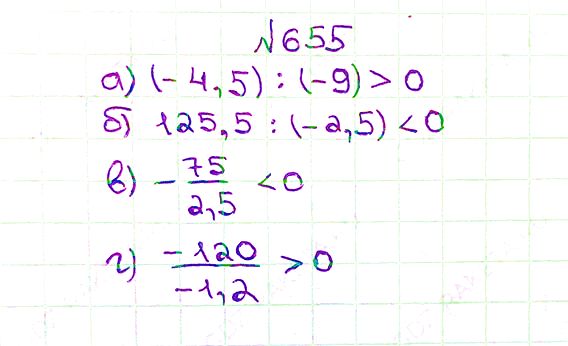 №655
а) (-4,5) : (-9) > 0
б) 125,5 : (-2,5) < 0
в) - 75/2,5 < 0
г) -120/-1,2 > 0